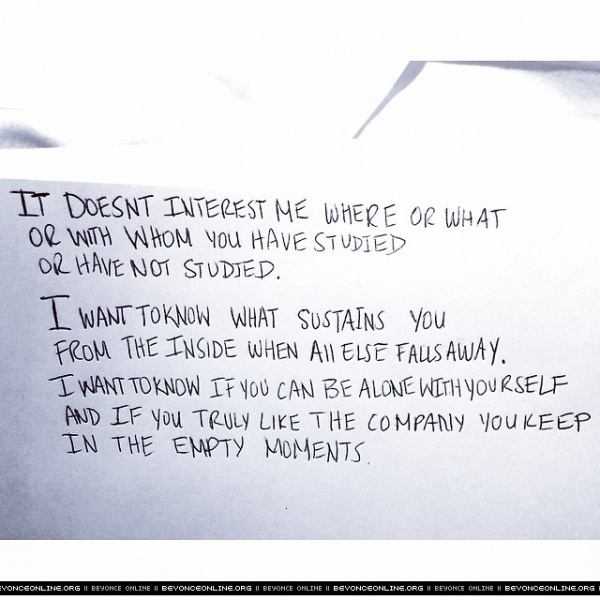 IT DOESNT INTEREST ME WHERE OR WHAT
OR WITH WHOM YOU HAVE STUDIED
OR HAVE NOT STUDIED.
I WANT TO KNOW WHAT SUSTAINS YOU
FROM THE INSIDE WHEN All ELSE FALLS AWAY.
I WANT TO KNOW IF YOU CAN BE ALONE WITH YOURSELF
AND IF YOU TRULY LIKE THE COMPANY YOU KEEP
IN THE EMPTY MOMENTS.
EYONCEONLINE.ORG || BEYONCE ONLINE || BEYONCEONLINE.ORG || BEYONCE ONLINE || BEYONCEONLINE.ORG || BEYONCE ONLINE || BEYONCEONLINE.ORG